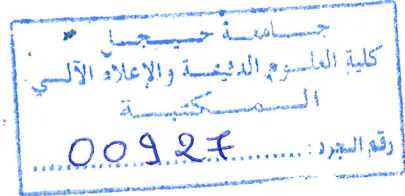 جامعة جيجل
كلية العلوم الدقيقة والإعلام الآلي
المكتبة
رقم الجرد : 00927